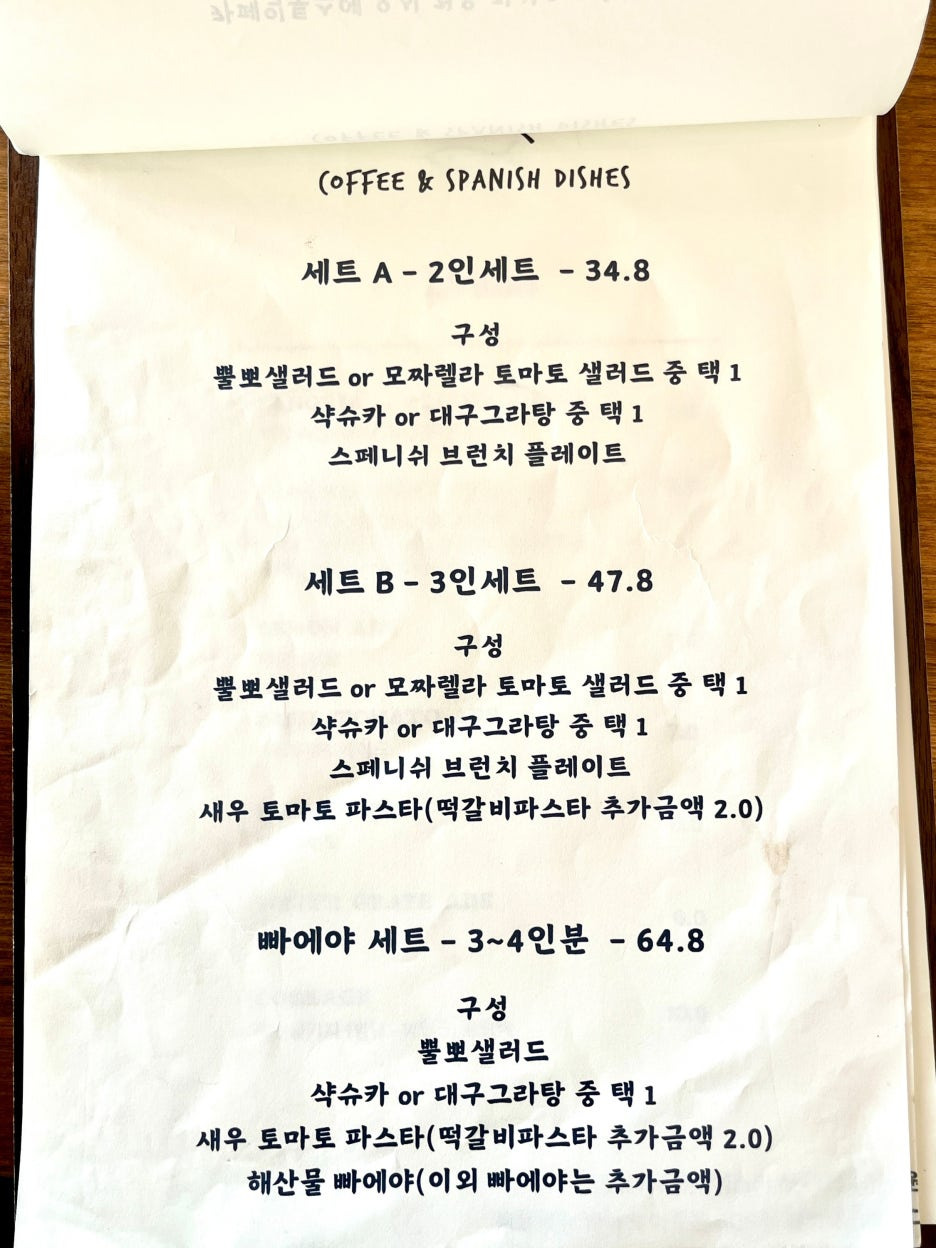 COFFEE & SPANISH DISHES
세트 A - 2인세트 - 34.8
구성
뿔뽀샐러드 or 모짜렐라 토마토 샐러드 중 택 1
샥슈카 or 대구그라탕 중 택 1
스페니쉬 브런치 플레이트
세트 B - 3인세트 - 47.8
구성
뿔뽀샐러드 or 모짜렐라 토마토 샐러드 중 택 1
샥슈카 or 대구그라탕 중 택 1
스페니쉬 브런치 플레이트
새우 토마토 파스타(떡갈비파스타 추가금액 2.0)
빠에야 세트 - 3~4인분 - 64.8
구성
뿔뽀샐러드
샥슈카 or 대구그라탕 중 택 1
새우 토마토 파스타(떡갈비파스타 추가금액 2.0)
해산물 빠에야(이외 빠에야는 추가금액)